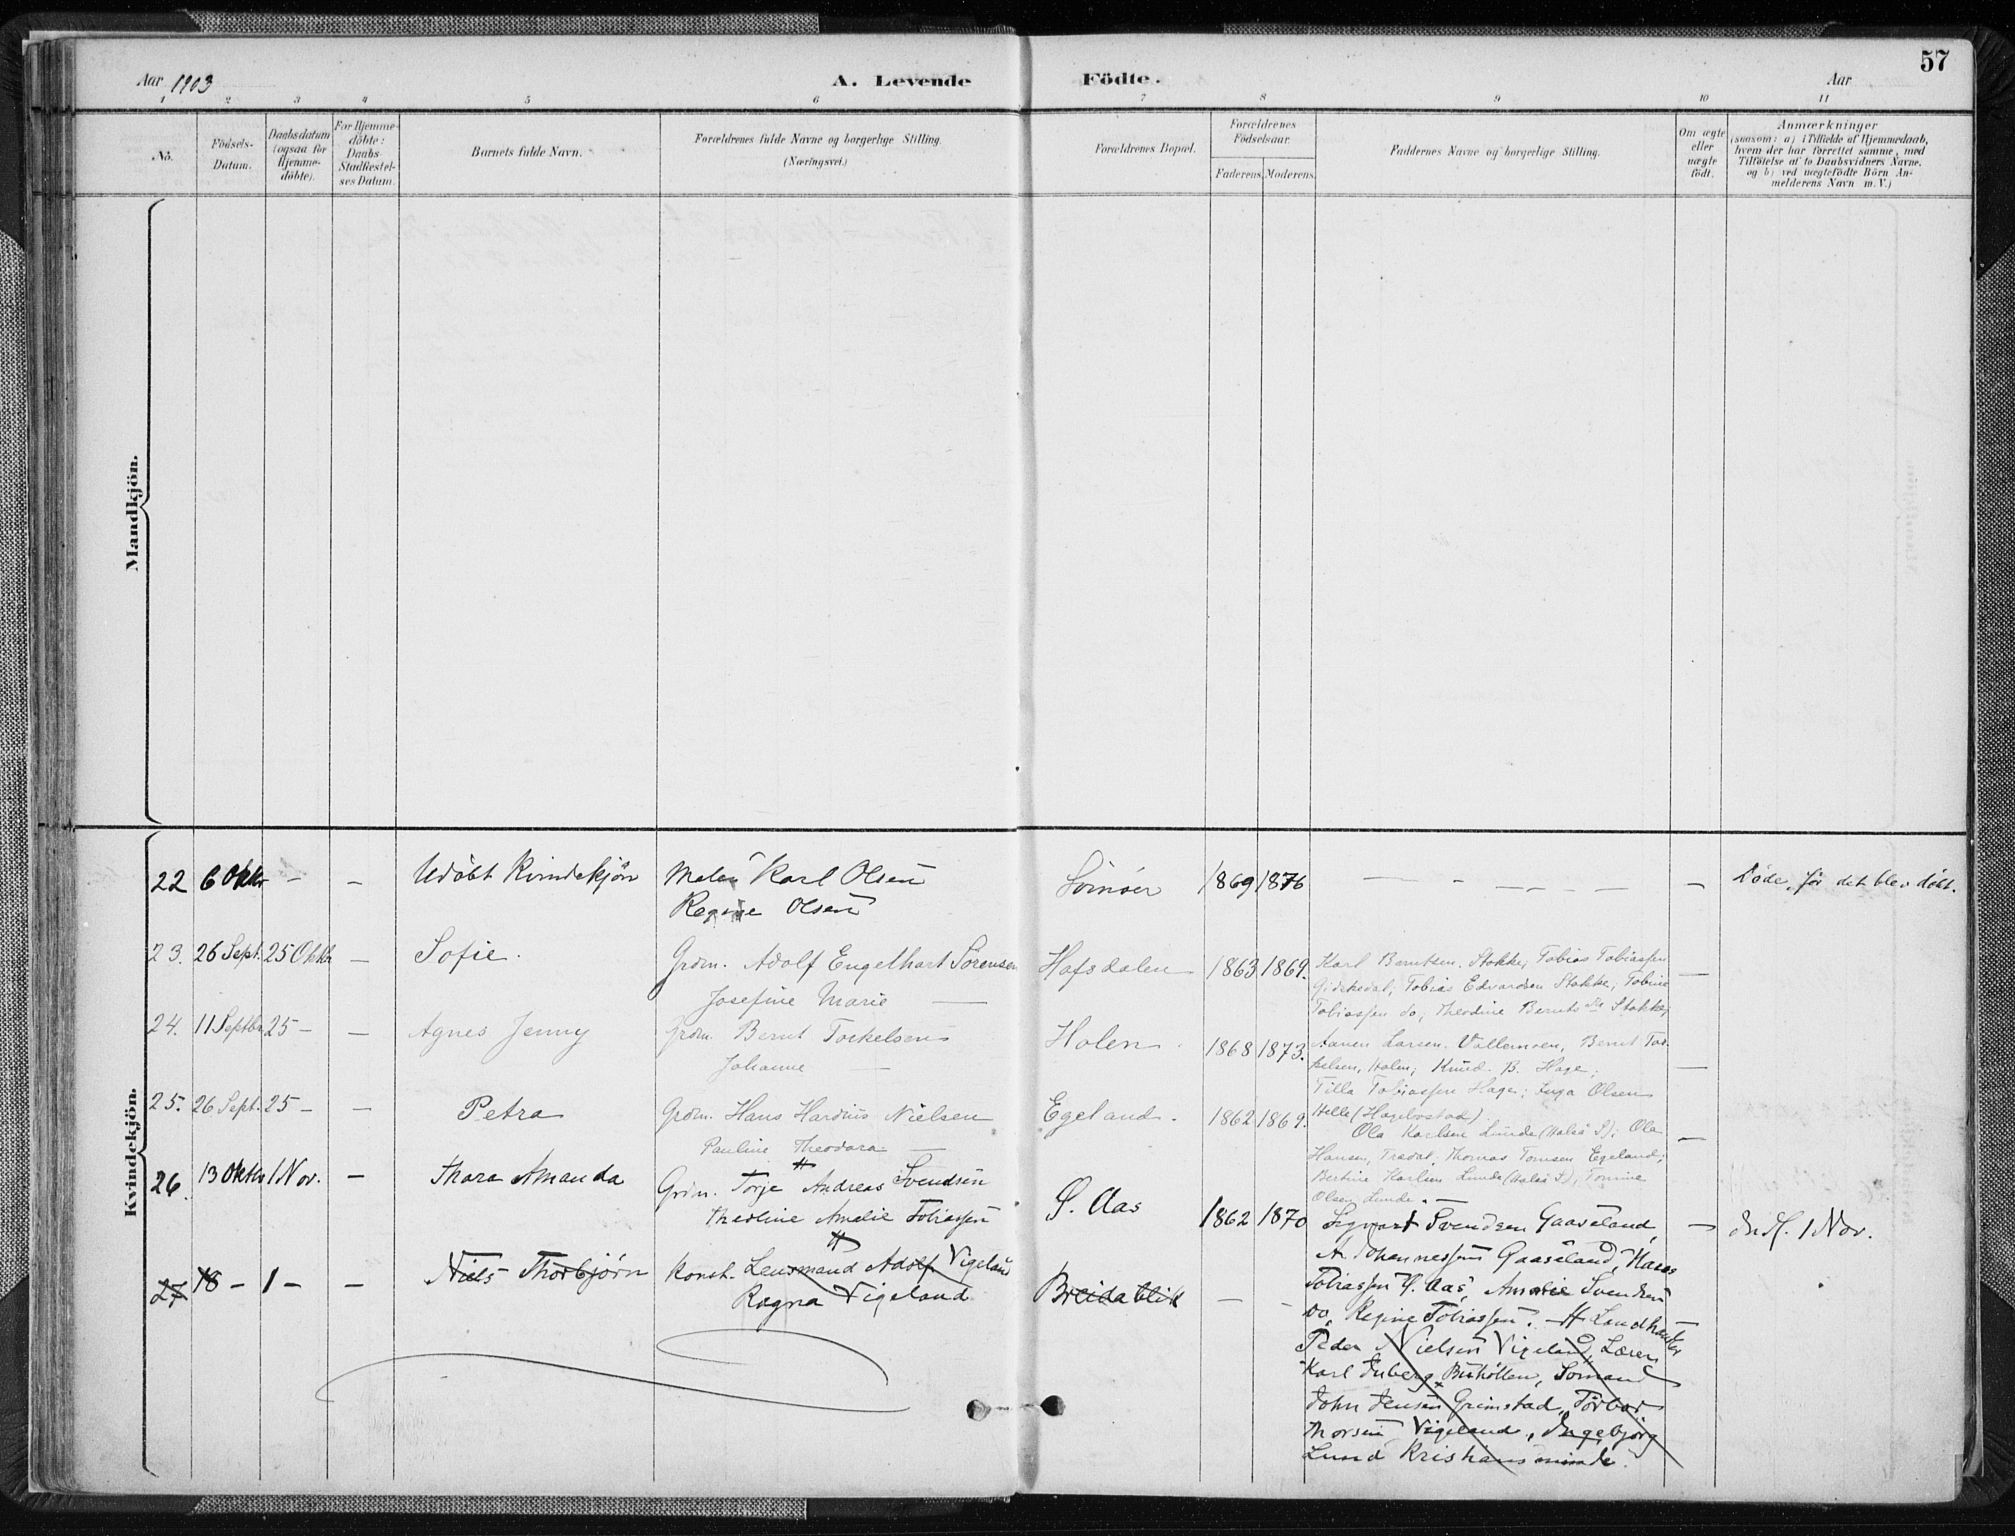 57
Aar 1903
A. Levende Födte.
Aar
1 2 3 4 5 6 7 8 9 10 11
Nō.
Födsels-
Datum.
Daabsdatum
(ogsaa for
Hjemme-
döbte).
For Hjemme-
döbte:
Daabs-
Stadfæstel-
ses Datum.
Barnets fulde Navn.
Forældrenes fulde Navne og borgerlige Stilling.
(Næringsvei.)
Forældrenes Bopæl.
Forældrenes
Födselsaar.
Faderens. Moderens.
Faddernes Navne og borgerlige Stilling.
Om ægte
eller
uægte
födt.
Anmærkninger
(saasom: a) i Tilfælde af Hjemmedaab,
hvem der har forrettet samme, med
Tilföielse af to Daabsvidners Navne,
og b) ved uægtefödte Börn An-
melderens Navn m. V.)
Mandkjön.
Kvindekjön.
22 6 Oktbr - - Udöbt Kvindekjön
Maler Karl Olsen
Regine Olsen
1869 1876 - - - - - - -
Döde, før det blev döbt.
23. 26 Sept. 25 Oktbr - Sofie.
Grdm. Adolf Engelhart Sørensen
Josefine Marie —
Hofsdalen 1863 1869.
Karl Berntsen. Stokke, Tobias Tobiassen
Gidskedal; Tobias Edvardsen Stokke; Tobine
Tobiassen do; Theodine Bernts dtr Stokke,
—
24. 11 Septbr 25 - - Agnes Jenny
Grdm. Bernt Torkelsen
Johanne —
Holen. 1868 1873.
Aanen Larsen. Vallemoen, Bernt Tor-
kelsen, Holen; Knud B. Hage;
Tilla Tobiassen Hage; Inga Olsen
Helle (Hagebostad)
—
25. 26 Sept. 25 - - Petra
Grdm. Hans Hardius Nielsen
Pauline Theodora —
Egeland. 1862 1869.
Ola Karlsen Lunde (Halså S); Ola
Hansen, Tredal, Thomas Tomsen Egeland;
Bertine Karlsen Lunde (Halså S), Tomine
Olsen Lunde. —
—
26. 13 Oktbr 1 Nov. - Thora Amanda
Grdm. Torje Andreas Svendsen
Theoline Amelie Tobiassen
Ø. Aas 1862 1870
Sigvart Svendsen Gaaseland,
A. Johannessen Gaaseland, Hans
Tobiassen Ø. Aas, Amalie Svendsen
do, Regine Tobiassen.
—
Indf. 1 Nov.
27 18 - 1 - - Niels Thorbjørn
Konst. Lensmand Adolf Vigeland
Ragna Vigeland
Breidablik - -
Landhandler
Peder Nielsen Vigeland, Lærer
Karl Buhölten, Sömand
John Jensen Grimstad,
Vigeland, Ingebjörg
Lund Kristiansminde.